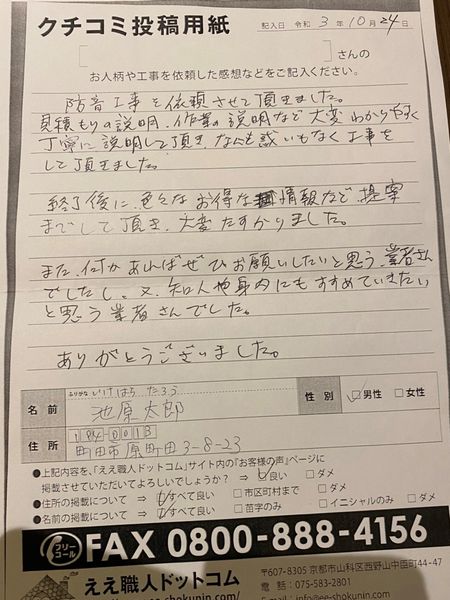 クチコミ投稿用紙
記入日 令和 3 年 10 月 24 日
[ ]さんの
お人柄や工事を依頼した感想などをご記入ください。
防音工事を依頼させて頂きました。
見積もりの説明、作業の説明など大変わかりやすく
丁寧に説明して頂き、なんも惑いもなく工事を
して頂きました。
終了後に、色々なお得な情報など提案
までして頂き、大変たすかりました。
また、何かあればぜひお願いしたいと思う業者さん
でしたし、又、知人や身内にもすすめていきたい
と思う業者さんでした。
ありがとうございました。
ふりがな いけはら たろう
名前 池原太郎 性別 ☑男性 □女性
住所 194-0013
町田市原町田3-8-23
●上記内容を、「ええ職人ドットコム」サイト内の「お客様の声」ページに
掲載させていただいてよろしいでしょうか? ⇒ ☑良い □ダメ
●住所の掲載について ⇒ ☑すべて良い □市区町村まで □ダメ
●名前の掲載について ⇒ ☑すべて良い □苗字のみ □イニシャルのみ □ダメ
フリーコール FAX 0800-888-4156
ええ職人ドットコム
〒607-8305 京都市山科区西野山中臣町44-47
電話:075-583-2801
info@ee-shokunin.com